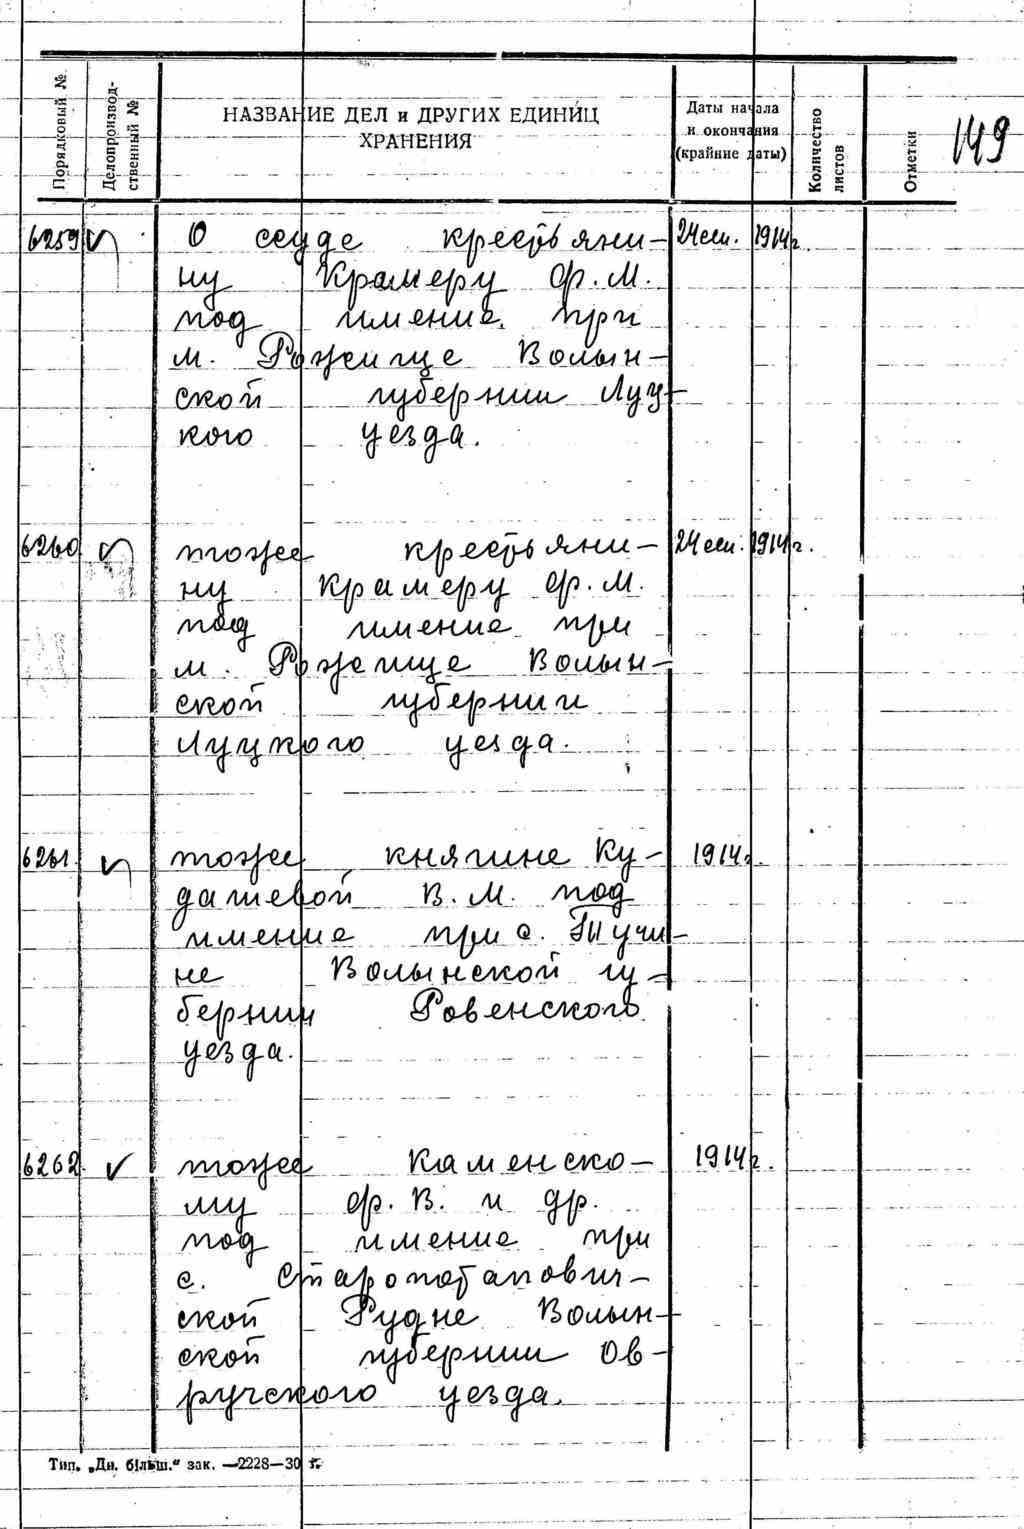 149
Порядковый №
Делопроизвод-
ственный №
НАЗВАНИЕ ДЕЛ и ДРУГИХ ЕДИНИЦ
ХРАНЕНИЯ
Даты начала
и окончания
(крайние даты)
Количество
листов
Отметки
6259 О ссуде крестьяни- 24 сен. 1914 г.
ну Крамеру Ф. М.
под имение при
м. Рожище Волын-
ской губернии Луц-
кого уезда.
6260 тоже крестьяни- 24 сен. 1914 г.
ну Крамеру Ф. М.
под имение при
м. Рожище Волын-
ской губернии
Луцкого уезда.
6261. тоже княгине Ку- 1914 г.
дашевой В. М. под
имение при с. Тучи-
не Волынской гу-
бернии Ровенского
уезда.
6262. тоже Каменско- 1914 г.
му Ф. В. и др.
под имение при
с. Старопотапович-
ской Рудне Волын-
ской губернии Ов-
ручского уезда.
Тип. „Дн. більш.“ зак. —2228—30 г.